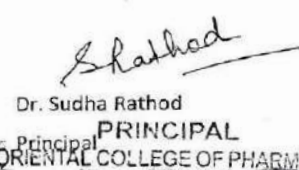 SRathod
Dr. Sudha Rathod
Principal PRINCIPAL
ORIENTAL COLLEGE OF PHARM